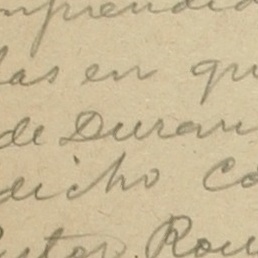 mprendid
las en qu
de Duran
dicho Co
Rou